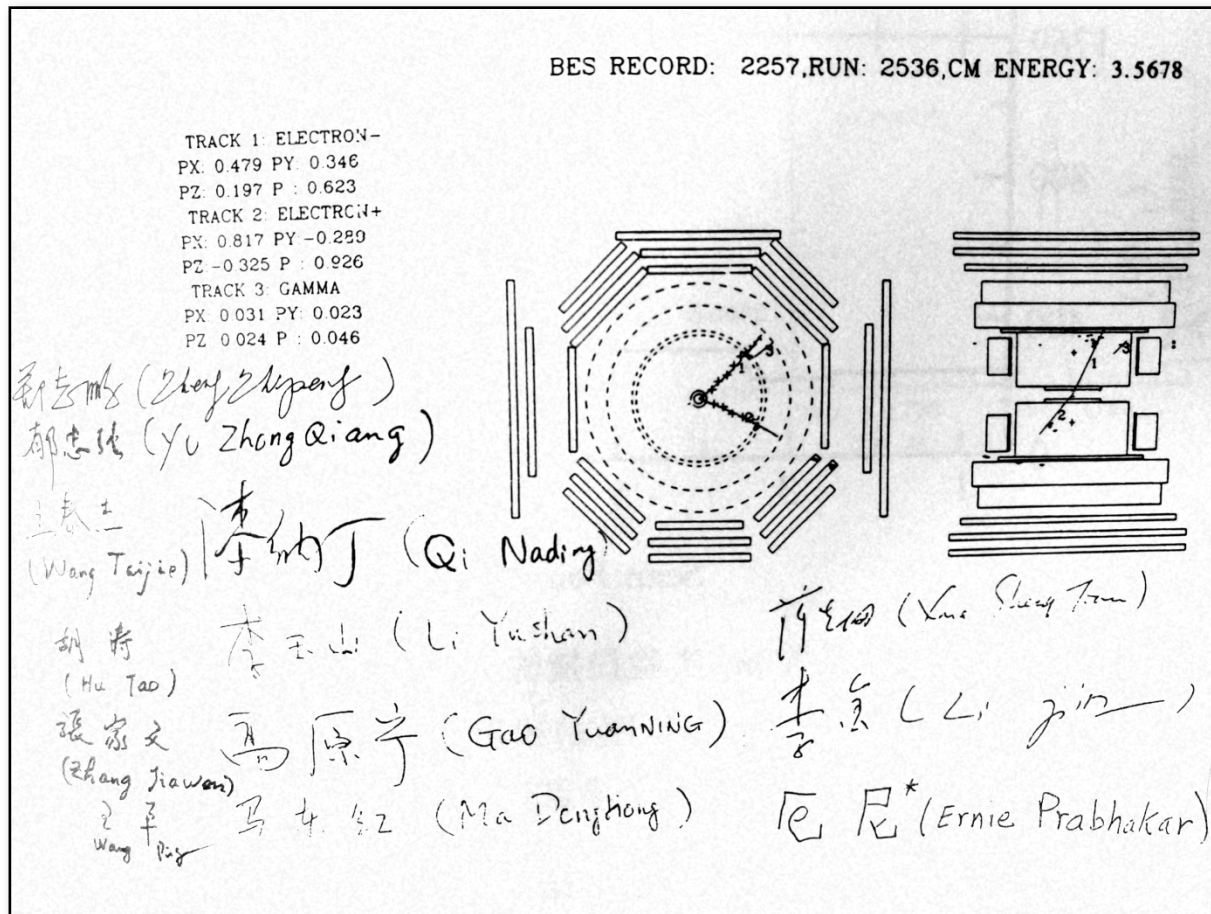 BES RECORD: 2257,RUN: 2536,CM ENERGY: 3.5678
TRACK 1: ELECTRON-
PX: 0.479 PY: 0.346
PZ: 0.197 P : 0.623
TRACK 2: ELECTRON+
PX: 0.817 PY -0.289
PZ -0.325 P : 0.926
TRACK 3: GAMMA
PX 0.031 PY: 0.023
PZ 0.024 P : 0.046
3
1
2
3
1
2
(Zheng Zhipeng)
郁忠强 (Yu Zhong Qiang)
(Wang Taijie)
漆纳丁 (Qi Nading)
李玉山 (Li Yushan)
胡涛
(Hu Tao)
張家文
(Zhang Jiawen)
高原宁 (Gao YuanNING)
李金 (Li jin)
王平
Wang Ping
马东红 (Ma Donghong)
(Ernie Prabhakar)